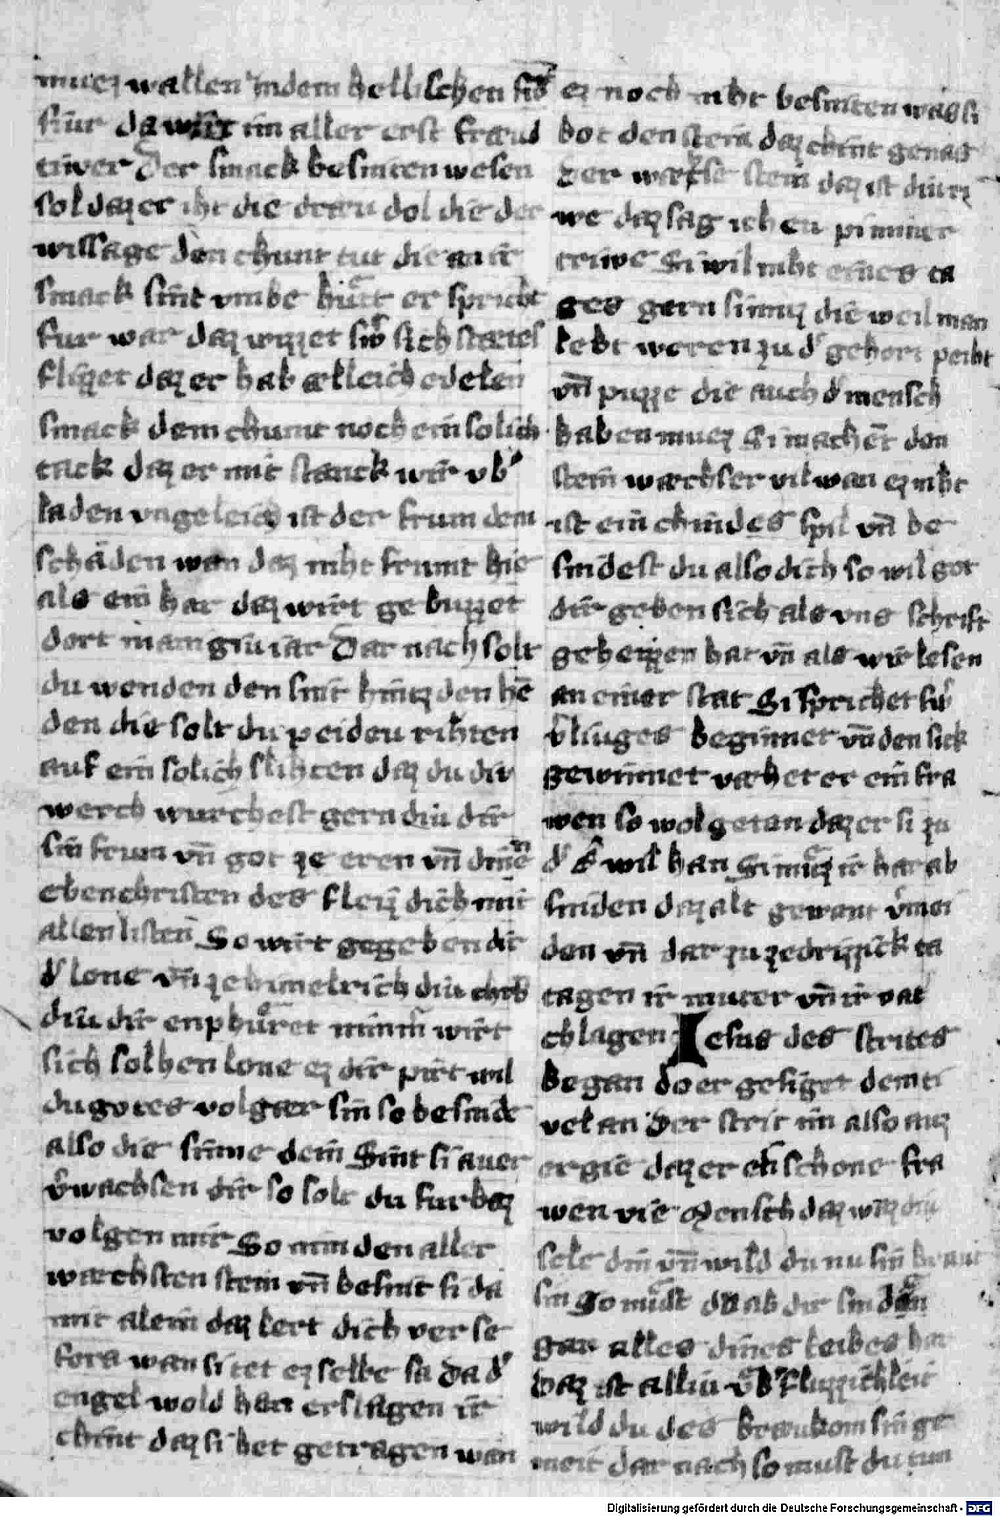 muez wallen in dem hellischen
fiur da wirt im aller erst fraud
tiwer Der smack besniten wesen
sol daz er iht die draeu dol die der
wissage den chunt tut die an ir
smack sint vmbe huert er spricht
fur war daz wizzet swer sich staetes
flizzet daz er hab aelleich edelen
smack dem chumt noch ein solich
tack daz er mit stanck wirt vber
laden vngeleich ist der frum dem
schaden wan daz niht frumt hie
als ein har daz wirt gebuzzet
dort manigiu iar Dar nach solt
du wenden den snit hintz den hen
den die solt du peideu rihten
auf ein solich slihten daz du diu
werch wurchest gern diu dir
sin frum vn got ze eren vn dinen
ebenchristen des fleiz dich mit
allen listen So wirt gegeben dir
der lone vn ze himelrich diu chron
diu dir enpburet nimmer wirt
sich solhen lone ez dir pirt wil
du gotes volgaer sin so besnide
also die sinne dein Sint si auer
verwachsen dir so solt du furbaz
volgen mir So nim den aller
waechsten stein vn besnit si da
mit alein daz lert dich ver se
fora wan si tet ez selbe sa Da der
engel wold han erslagen ir
chint daz si het getragen wan
ez noch niht besniten was si
bot den stein daz chint genas
Der waehse stein daz ist diu ri
we daz sag ich eu pi miner
triwe Si wil niht eines ta
ges gern sin diu weil man
lebt weren zu der gehort peiht
vn puzze die auch der mensch
haben muez Si machet den
stein waehser vil wan ez niht
ist ein chindes spil vn be
snidest du also dich so wil got
dir geben sich als vns schrift
geheizzen hat vn als wir lesen
an einer stat Si sprichet swer
vrliuges beginnet vn den sick
gewinnet vaehet er ein fra
wen so wol getan daz er si zu
der e wil han Si muez ir har ab
sniden daz alt gewant vermei
den vn dar zu ze drizzick ta
tagen ir muter vn ir vater
chlagen Iesus des strites
began do er gesiget dem ti
vel an Der strit im also auz
ergie daz er ein schone fra
wen vie Mensch daz waz diu
sele din vn wild du nu sin braut
sin So muest du ab dir sniden
gar alles dines leibes har
Daz ist alliu vberfluzzichleit
wild du des kraeukom sin ge
meit dar nach so must du tun